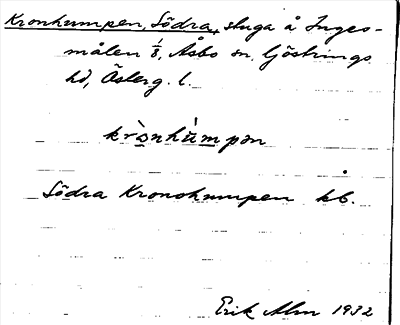 Kronhumpen, Södra, stuga å Inges-
målen 1/8, Åsbo sn, Göstrings
hd, Österg. l.
krònhùmpən
Södra Kronohumpen kb.
Erik Alm 1932